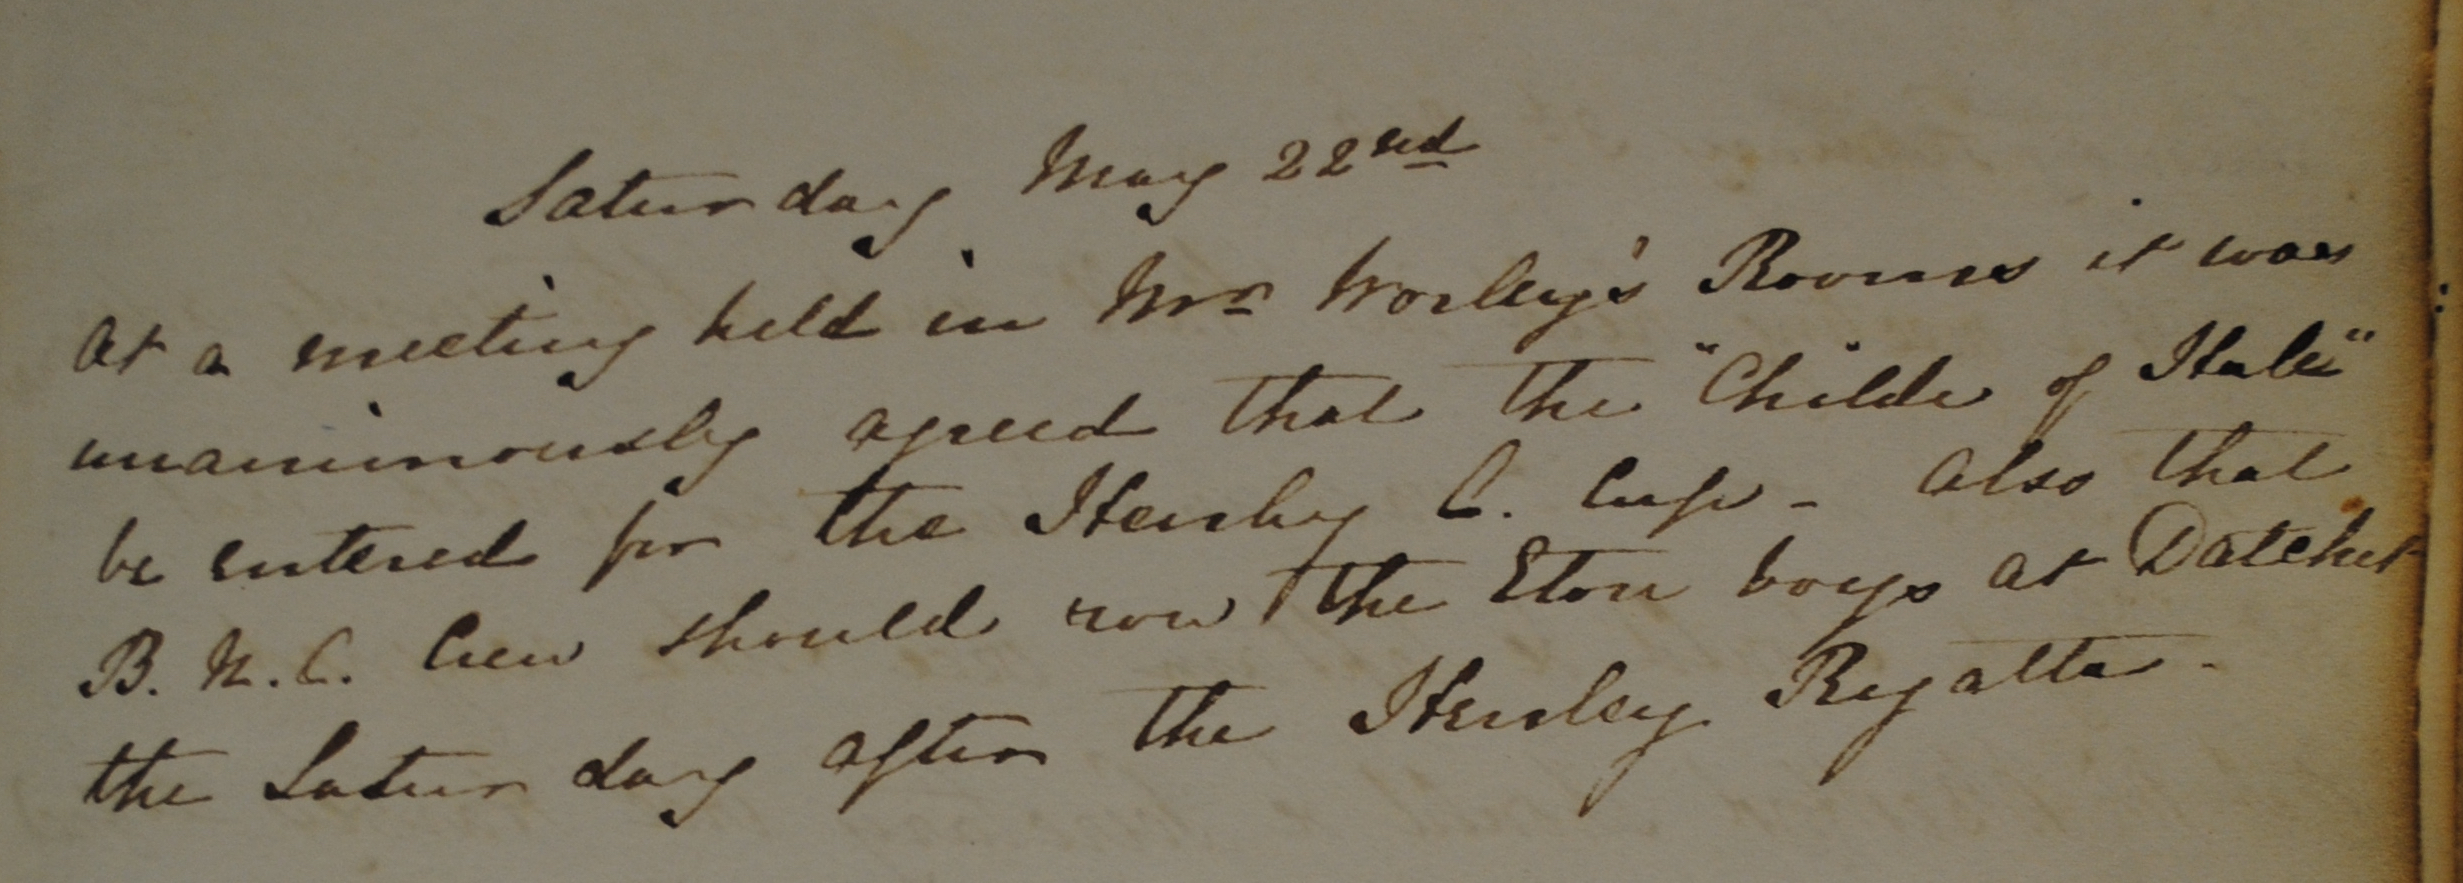 Saturday May 22nd
At a meeting held in Mr Worley's Rooms it was
unanimously agreed that the "Childe of Hale"
be entered for the Henley C. Cup - Also that
B. N. C. Crew should row the Eton boys at Datchet
the Saturday after the Henley Regatta -